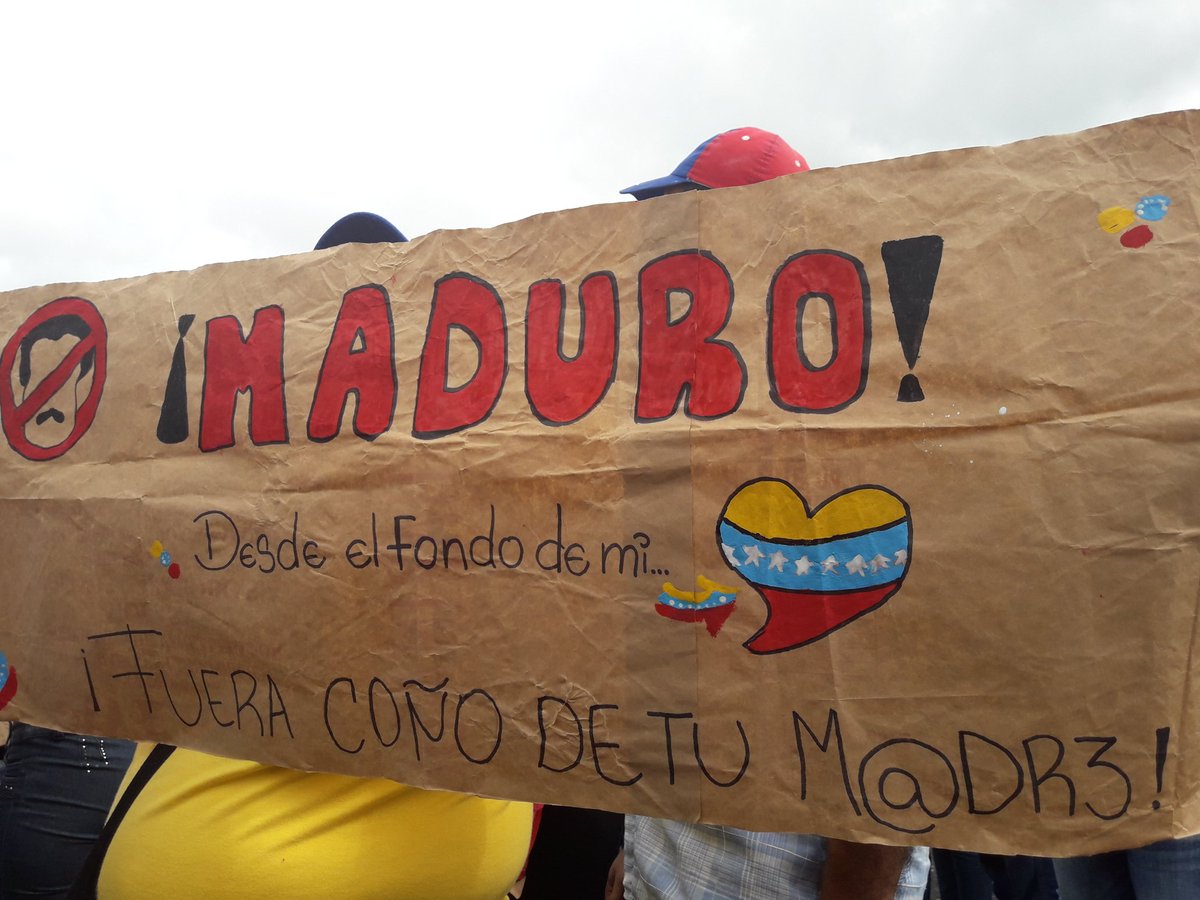 ¡MADURO!
Desde el fondo de mi...
¡FUERA COÑO DE TU M@DR3!